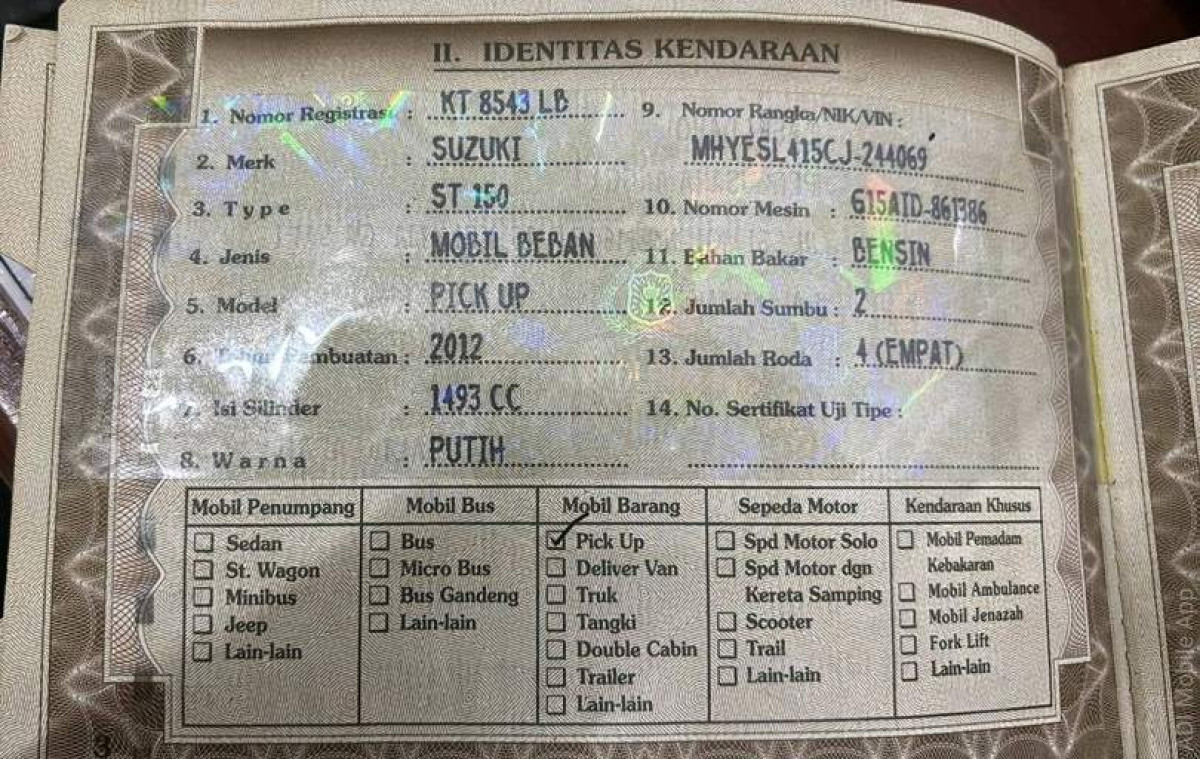 II. IDENTITAS KENDARAAN
1. Nomor Registrasi : KT 8543 LB
2. Merk : SUZUKI
3. Type : ST 150
4. Jenis : MOBIL BEBAN
5. Model : PICK UP
6. Tahun Pembuatan : 2012
7. Isi Silinder : 1493 CC
8. Warna : PUTIH
9. Nomor Rangka/NIK/VIN :
MHYESL415CJ-244069
10. Nomor Mesin : G15AID-861386
11. Bahan Bakar : BENSIN
12. Jumlah Sumbu : 2
13. Jumlah Roda : 4 (EMPAT)
14. No. Sertifikat Uji Tipe :
Mobil Penumpang
Sedan
St. Wagon
Minibus
Jeep
Lain-lain
Mobil Bus
Bus
Micro Bus
Bus Gandeng
Lain-lain
Mobil Barang
Pick Up
Deliver Van
Truk
Tangki
Double Cabin
Trailer
Lain-lain
Sepeda Motor
Spd Motor Solo
Spd Motor dgn
Kereta Samping
Scooter
Trail
Lain-lain
Kendaraan Khusus
Mobil Pemadam
Kebakaran
Mobil Ambulance
Mobil Jenazah
Fork Lift
Lain-lain
3
Mobile App